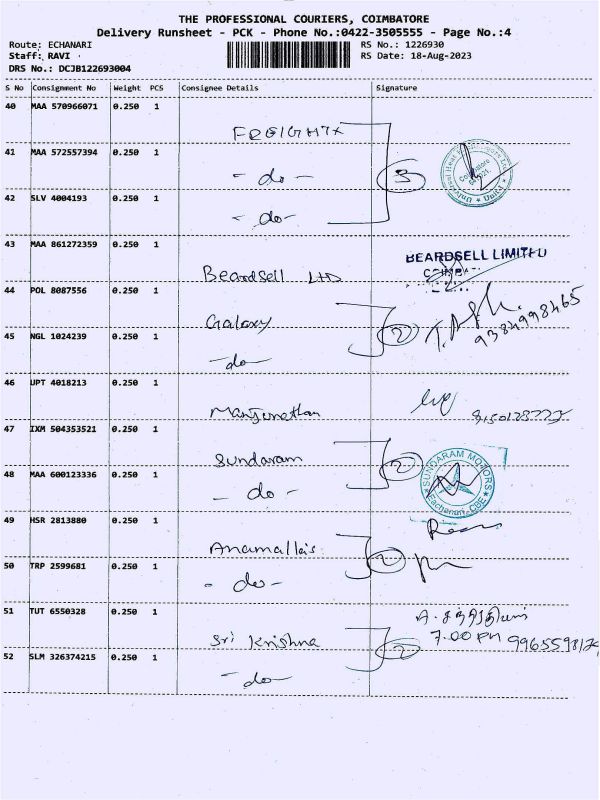 THE PROFESSIONAL COURIERS, COIMBATORE
Delivery Runsheet - PCK - Phone No.:0422-3505555 - Page No.:4
Route: ECHANARI RS No.: 1226930
Staff: RAVI RS Date: 18-Aug-2023
DRS No.: DCJB122693004
S No Consignment No Weight PCS Consignee Details Signature
40 MAA 570966071 0.250 1
41 MAA 572557394 0.250 1 - do - 3
42 SLV 4004193 0.250 1 - do -
43 MAA 861272359 0.250 1 Beardsell LTD BEARDSELL LIMITED
44 POL 8087556 0.250 1 Galaxy 2 9384998465
45 NGL 1024239 0.250 1 - do -
46 UPT 4018213 0.250 1
47 IXM 504353521 0.250 1 Sundaram 2 SUNDARAM MOTORS
48 MAA 600123336 0.250 1 - do - Eachanari, CBE
49 HSR 2813880 0.250 1 Anamallais 2
50 TRP 2599681 0.250 1 - do -
51 TUT 6550328 0.250 1 Sri Krishna 2 7.00 PM
52 SLM 326374215 0.250 1 - do -